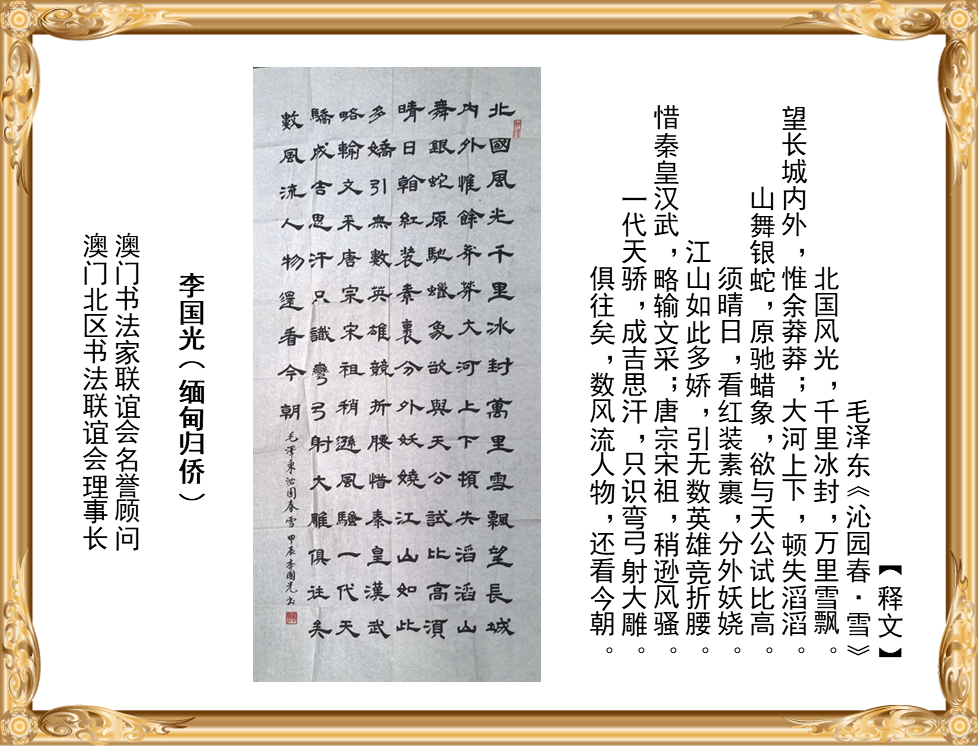 【释文】
毛泽东《沁园春·雪》
北国风光，千里冰封，万里雪飘。
望长城内外，惟余莽莽；大河上下，顿失滔滔。
山舞银蛇，原驰蜡象，欲与天公试比高。
须晴日，看红装素裹，分外妖娆。
江山如此多娇，引无数英雄竞折腰。
惜秦皇汉武，略输文采；唐宗宋祖，稍逊风骚。
一代天骄，成吉思汗，只识弯弓射大雕。
俱往矣，数风流人物，还看今朝。
北國風光千里冰封萬里雪飄望長城
内外惟餘莽莽大河上下頓失滔滔山
舞銀蛇原馳蠟象欲與天公試比高須
晴日看紅裝素裹分外妖嬈江山如此
多嬌引無數英雄競折腰惜秦皇漢武
略輸文采唐宗宋祖稍遜風騷一代天
驕成吉思汗只識彎弓射大雕俱往矣
數風流人物還看今朝 毛澤東沁園春雪 甲辰李國光書
李国光（缅甸归侨）
澳门书法家联谊会名誉顾问
澳门北区书法联谊会理事长